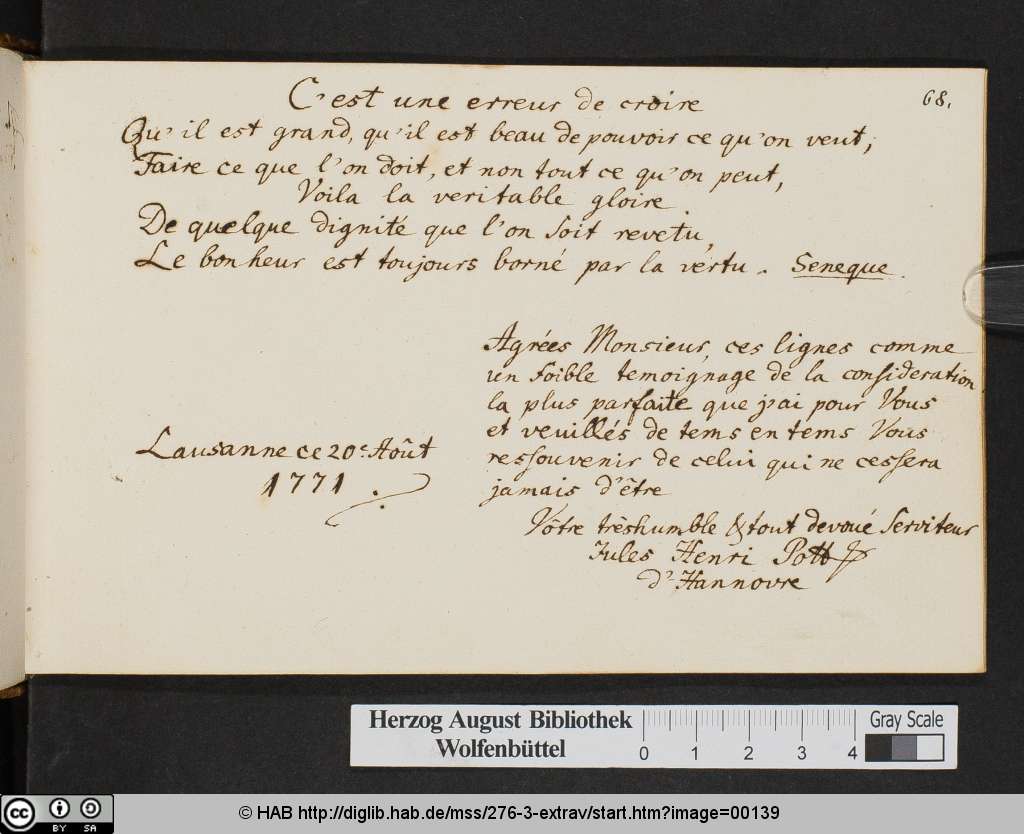 68.
C'est une erreur de croire
Qu'il est grand, qu'il est beau de pouvoir ce qu'on veut;
Faire ce que l'on doit, et non tout ce qu'on peut,
Voila la veritable gloire.
De quelque dignité que l'on soit revetu,
Le bonheur est toujours borné par la vertu. Seneque.
Agrées Monsieur, ces lignes comme
un foible temoignage de la consideration
la plus parfaite que j'ai pour Vous
et veuillés de tems en tems Vous
ressouvenir de celui qui ne cessera
jamais d'être
Lausanne ce 20e Aôut
1771.
Vôtre trèshumble & tout devoué Serviteur
Jules Henri Pott
d'Hannovre
Herzog August Bibliothek
Wolfenbüttel
0 1 2 3 4
Gray Scale
cc BY SA
© HAB http://diglib.hab.de/mss/276-3-extrav/start.htm?image=00139